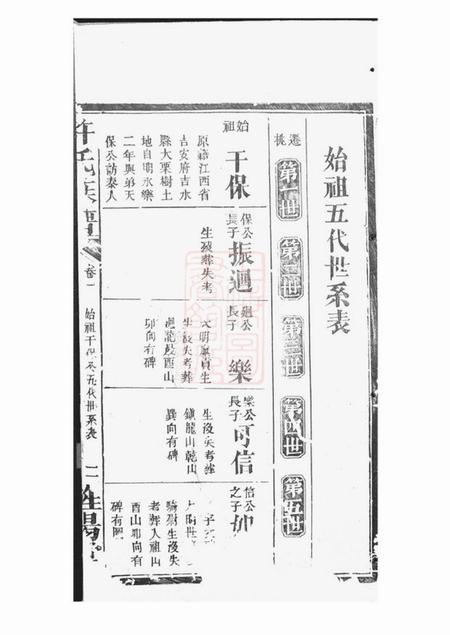 始祖五代世系表
遷桃
第一世
第二世
第三世
第四世
第五世
始祖
干保
原籍江西省
吉安府吉水
縣大栗樹土
地自明永樂
二年與弟天
保公訪泰人
保公
長子
振迥
生歿葬失考
迥公
長子
樂
大明庠貢生
生歿失考葬
酉山
卯向有碑
樂公
長子
可信
生沒失考葬
鎮龍山乾山
巽向有碑
信公
之子
生沒失
考葬入祖山
酉山卯向有
碑有圖
許氏族譜
卷一
始祖干保公五代世系表
二
睢陽堂